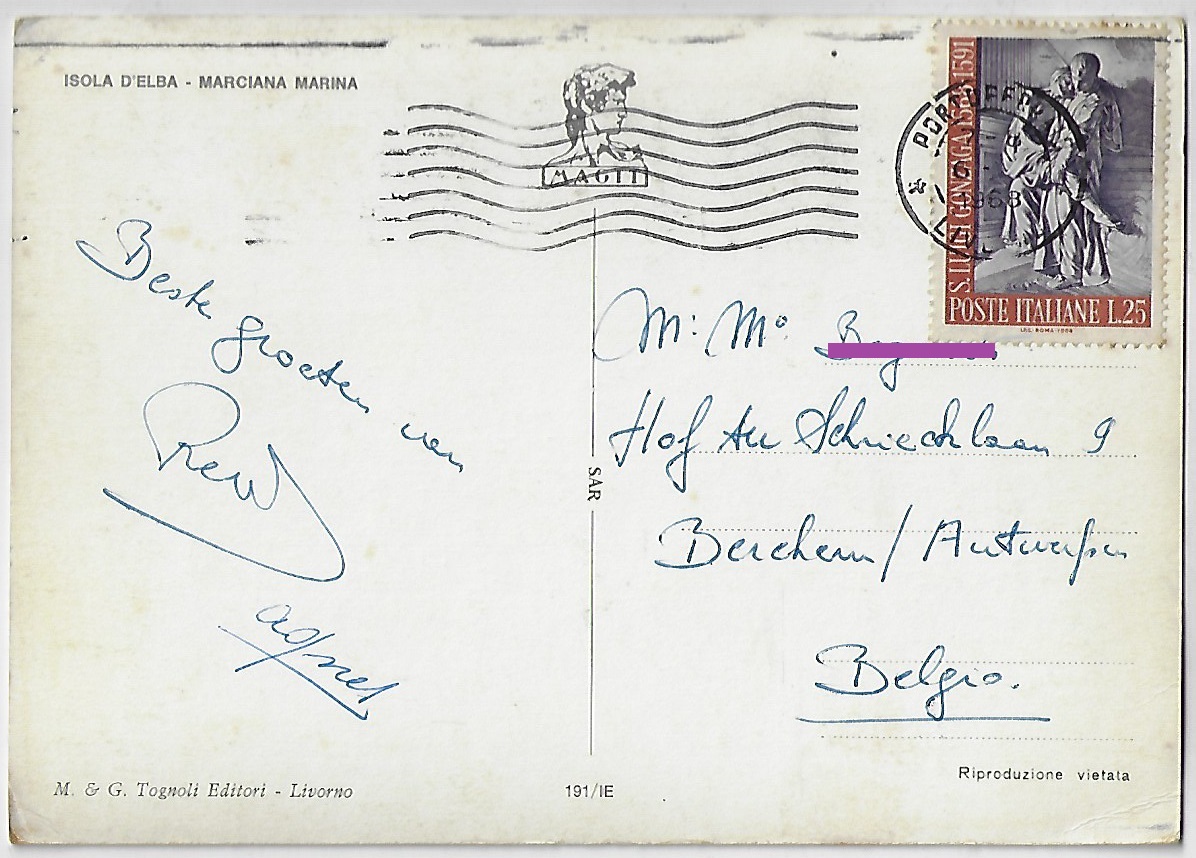 ISOLA D'ELBA - MARCIANA MARINA
MAGIT
S. LUIGI GONZAGA 1568-1591
POSTE ITALIANE L.25
I.P.S. ROMA 1968
PORTOFERR
1968
Beste groeten van
René
agnes
M: Mº
Hof ter Schriecklaan 9
Berchem/Antwerpen
Belgio.
SAR
M. & G. Tognoli Editori - Livorno
191/IE
Riproduzione vietata